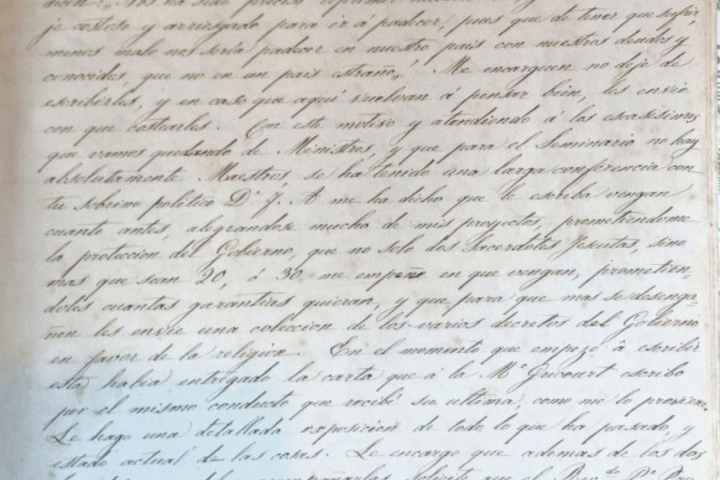 dicen: "Nos ha sido preciso
je costoso y arriesgado para ir á padecer, pues que de tener que sufrir
menos malo nos sería padecer en nuestro pais con nuestros deudos y
conocidos, que no en un pais estraño". Me encargan no deje de
escribirles, y en caso que aquí vuelvan á pensar bien, les envie
con que costearlas. Con este motivo y atendiendo á los escasísimos
que vamos quedando de Ministros, y que para el Seminario no hay
absolutamente Maestros, se ha tenido una larga conferencia con
tu sobrino político Dn J. A me ha dicho que le escriba vengan
cuanto antes, alegrandose mucho de mis proyectos, prometiendome
la proteccion del Gobierno, que no solo dos Sacerdotes Jesuitas, sino
mas que sean 20, ó 30 me empeñe en que vengan, prometien-
doles cuantas garantias quieran, y que para que mas se desenga-
ñen les envie una coleccion de los varios decretos del Gobierno
en favor de la religion. En el momento que empezé â escribir
esta había entregado la carta que á la Me Gricourt escribo
por el mismo conducto que recibí su ultima, como me lo previene.
Le hago una detallada exposicion de todo lo que ha pasado, y
estado actual de las cosas. Le encargo que ademas de los dos
acompañarlas, solicite que el Rvo. Pe